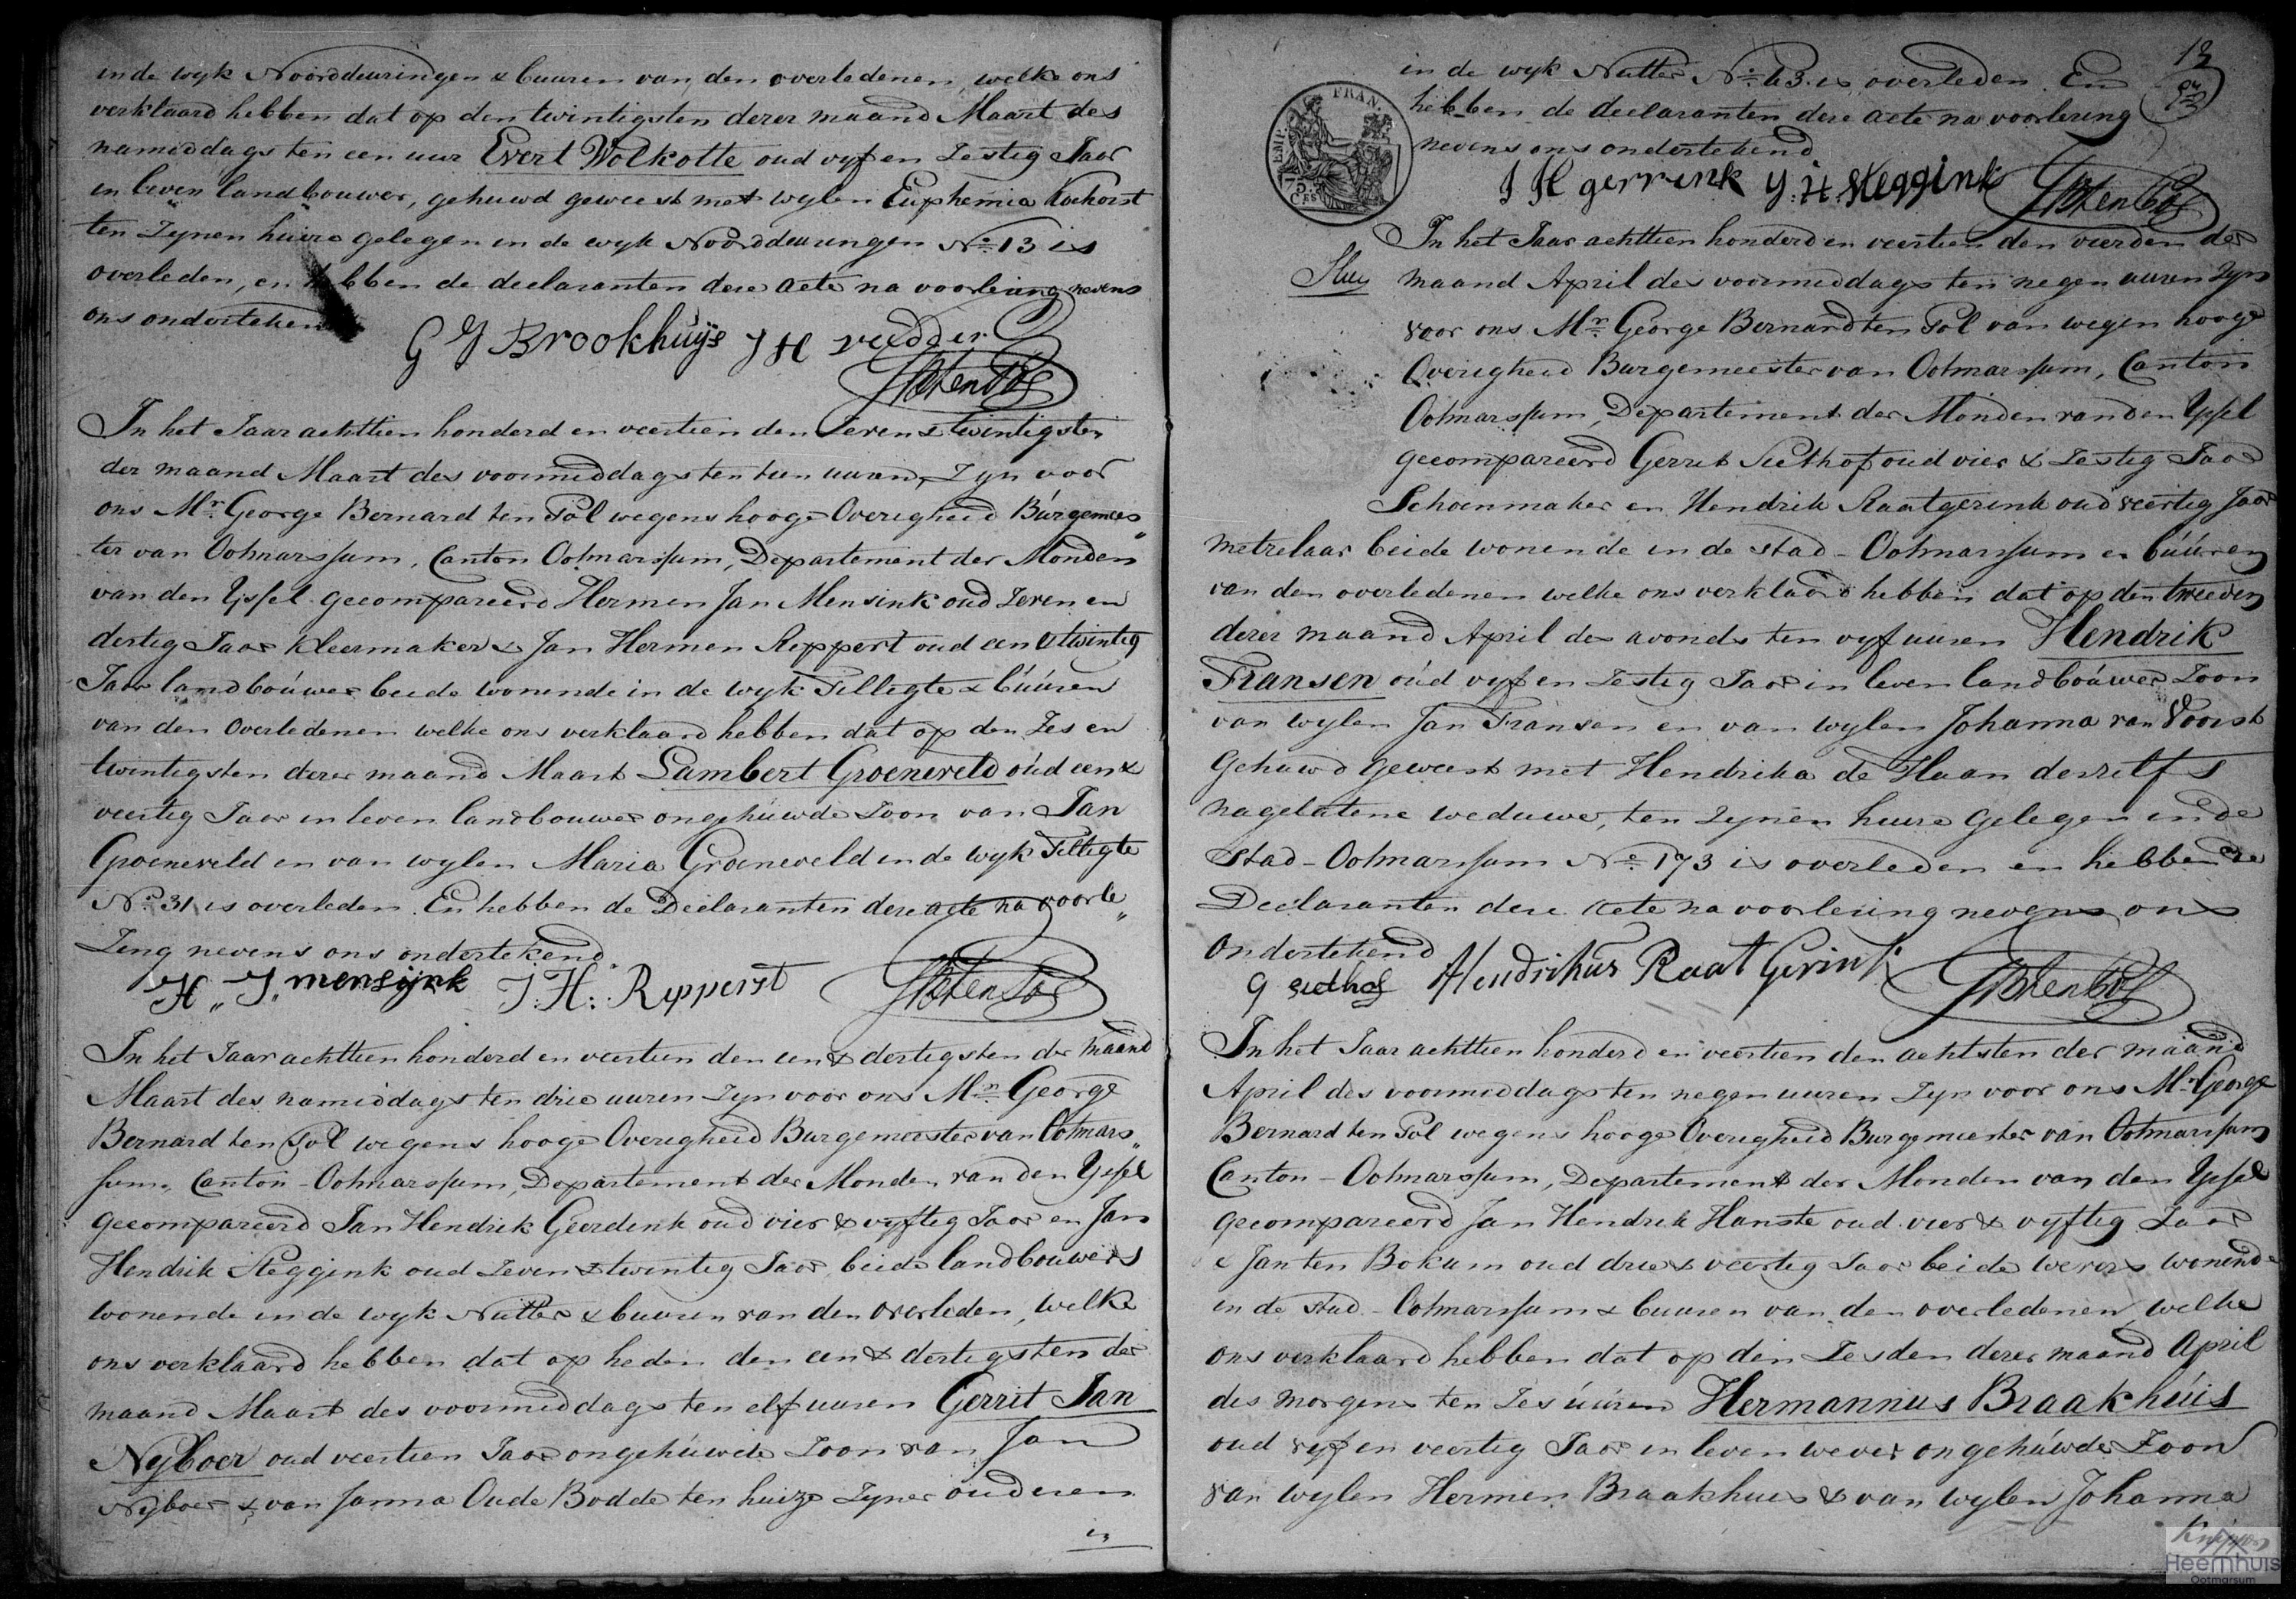 in de wyk Noorddeuringen & buuren van den overledenen, welke ons
verklaard hebben dat op den twintigsten derer maand Maart des
namiddags ten een uur Evert Volkotte oud vyf en Zestig Jaar
in leven landbouwer, gehuwd geweest met wylen Euphemia Kochorst
ten Zynen huize gelegen in de wyk Noorddeurungen No 13 is
overleden, en hebben de declaranten deze acte na voorlezing nevens
ons ondertekend
G J Brookhuijs J H vedder GB ten Pol
In het Jaar achttien honderd en veertien den Zeven & twintigsten
der maand Maart des voormiddags ten tien uuren, Zyn voor
ons Mr. George Bernard ten Pol wegens hooge Overigheid Burgemees„
ter van Ootmarssum, Canton Ootmarssum, Departement der Monden
van den Yssel gecompareerd Hermen Jan Mensink oud Zeven en
dertig Jaar Kleermaker & Jan Hermen Reppert oud een & twintig
Jaar landbouwer beide wonende in de wyk Tilligte & buuren
van den Overledenen welke ons verklaard hebben dat op den Zes en
twintigsten derer maand Maart Lambert Groeneveld oud een &
veertig Jaar in leven landbouwer ongehuwde Zoon van Jan
Groeneveld en van wylen Maria Groeneveld in de wyk Tilligte
No 31 is overleden. En hebben de Declaranten deze acte na voorle„
Zing nevens ons ondertekend.
H„ J„ mensijnk J: H: Repperst GB ten Pol
In het Jaar achttien honderd en veertien den een & dertigsten der maand
Maart des namiddags ten drie uuren Zyn voor ons Mr. George
Bernard ten Pol wegens hooge Overigheid Burgemeester van Ootmars„
sum, Canton-Ootmarssum, Departement der Monden van den Yssel
gecompareerd Jan Hendrik Geerdink oud vier & vyftig Jaar en Jan
Hendrik Steggink oud Zeven & twintig Jaar, beide landbouwers
wonende in de wyk Nutter & buuren van den overleden, welke
ons verklaard hebben dat op heden den een & dertigsten der
maand Maart des voormiddags ten elf uuren Gerrit Jan
Nyboer oud veertien Jaar ongehuwde Zoon van Jan
Nijboer & van Janna Oude Bodde ten huize Zyner ouderen
in
13
in de wyk Nutter No 63. is overleden. En
hebben de declaranten deze acte na voorlezing
nevens ons ondertekend
EMP. FRAN.
75
CES
J H gerrenk J: H: steggink GB ten Pol
In het Jaar achttien honderd en veertien den vierden der
maand April des voormiddags ten negen uuren Zyn
voor ons Mr. George Bernard ten Pol van wegen hooge
Overigheid Burgemeester van Ootmarssum, Canton
Ootmarssum, Departement der Monden van den Yssel
gecompareerd Gerrit Siethof oud vier & Zestig Jaar
Schoenmaker en Hendrik Raatgerink oud veertig Jaar
metzelaar beide wonende in de stad-Ootmarssum en buuren
van den overledenen welke ons verklaard hebben dat op den tweeden
derer maand April des avonds ten vyf uuren Hendrik
Fransen oud vyf en Zestig Jaar in leven landbouwer Zoon
van wylen Jan Fransen en van wylen Johanna van Voorst
gehuwd geweest met Hendrika de Haan deszelfs
nagelatene weduwe, ten Zynen huize gelegen in de
stad-Ootmarssum No 173 is overleden en hebben de
Declaranten deze acte na voorlezing nevens ons
ondertekend
G siedhof Hendrikus Raat Gerink GB ten Pol
In het Jaar achttien honderd en veertien den achtsten der maand
April des voormiddags ten negen uuren Zyn voor ons Mr. George
Bernard ten Pol wegens hooge Overigheid Burgemeester van Ootmarssum
Canton-Ootmarssum, Departement der Monden van den Yssel
gecompareerd Jan Hendrik Hanste oud vier & vyftig Jaar
& Jan ten Bokum oud drie & veertig Jaar beide wevers wonende
in de stad-Ootmarssum & buuren van den overledenen, welke
ons verklaard hebben dat op den Zesden derer maand April
des morgens ten Zes uuren Hermannus Braakhuis
oud vyf en veertig Jaar in leven wever ongehuwde Zoon
van wylen Hermen Braakhuis & van wylen Johanna
Heemhuis
Ootmarsum